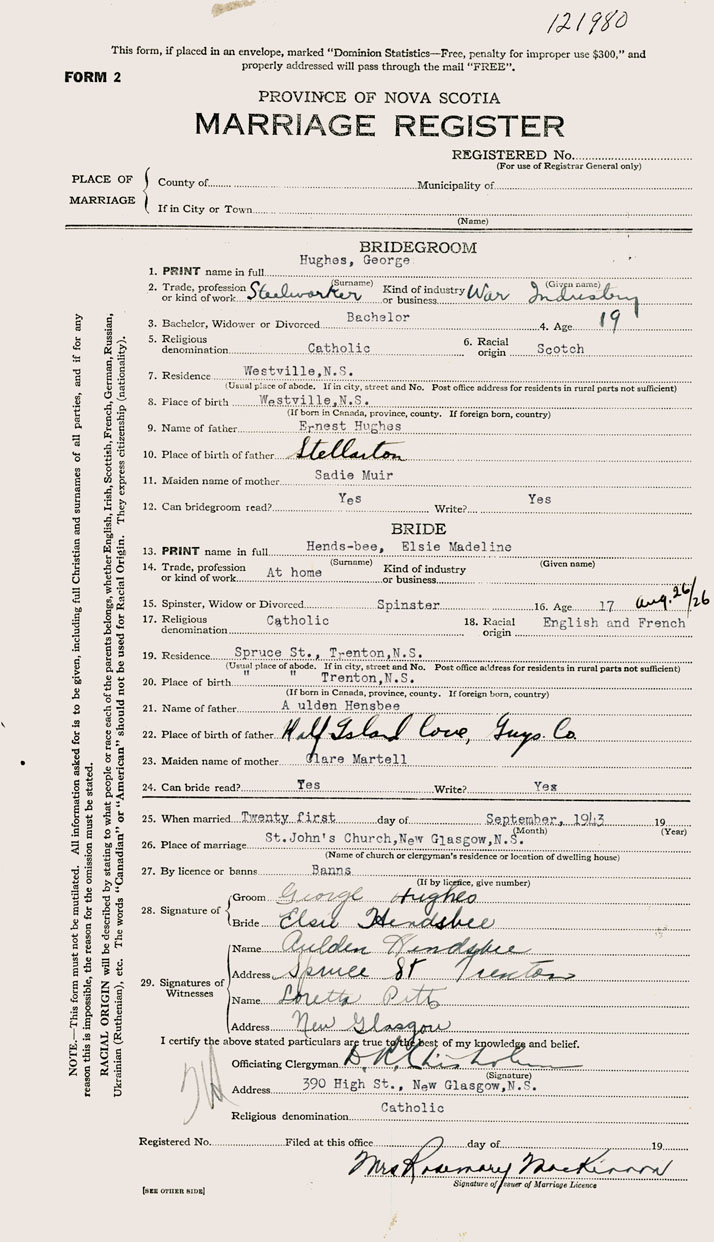 121980
This form, if placed in an envelope, marked "Dominion Statistics—Free, penalty for improper use $300," and
properly addressed will pass through the mail "FREE".
FORM 2
PROVINCE OF NOVA SCOTIA
MARRIAGE REGISTER
REGISTERED No.
(For use of Registrar General only)
PLACE OF MARRIAGE
County of Municipality of
If in City or Town
(Name)
BRIDEGROOM
Hughes, George
1. PRINT name in full
(Surname) (Given name)
2. Trade, profession or kind of work Steelworker Kind of industry or business War Indusbry
3. Bachelor, Widower or Divorced Bachelor 4. Age 19
5. Religious denomination Catholic 6. Racial origin Scotch
7. Residence Westville,N.S.
(Usual place of abode. If in city, street and No. Post office address for residents in rural parts not sufficient)
8. Place of birth Westville,N.S.
(If born in Canada, province, county. If foreign born, country)
9. Name of father Ernest Hughes
10. Place of birth of father Stellarton
11. Maiden name of mother Sadie Muir
12. Can bridegroom read? Yes Write? Yes
BRIDE
13. PRINT name in full Hends-bee, Elsie Madeline
(Surname) (Given name)
14. Trade, profession or kind of work At home Kind of industry or business
15. Spinster, Widow or Divorced Spinster 16. Age 17 Aug. 26/26
17. Religious denomination Catholic 18. Racial origin English and French
19. Residence Spruce St., Trenton,N.S.
(Usual place of abode. If in city, street and No. Post office address for residents in rural parts not sufficient)
20. Place of birth " " Trenton,N.S.
(If born in Canada, province, county. If foreign born, country)
21. Name of father A ulden Hensbee
22. Place of birth of father Half Island Cove, Guys. Co.
23. Maiden name of mother Clare Martell
24. Can bride read? Yes Write? Yes
25. When married Twenty first day of September, 1943 19
(Month) (Year)
26. Place of marriage St.John's Church,New Glasgow,N.S.
(Name of church or clergyman's residence or location of dwelling house)
27. By licence or banns Banns
(If by licence, give number)
28. Signature of
Groom George Hughes
Bride Elsie Hendsbee
29. Signatures of Witnesses
Name Aulden Hendsbee
Address Spruce St Trenton
Name Loretta Pitts
Address New Glasgow
I certify the above stated particulars are true to the best of my knowledge and belief.
Officiating Clergyman D. R. Chisholm
(Signature)
Address 390 High St., New Glasgow,N.S.
Religious denomination Catholic
Registered No. Filed at this office day of 19
Mrs Rosemary MacKinnon
Signature of issuer of Marriage Licence
[SEE OTHER SIDE]
NOTE.—This form must not be mutilated. All information asked for is to be given, including full Christian and surnames of all parties, and if for any
reason this is impossible, the reason for the omission must be stated.
RACIAL ORIGIN will be described by stating to what people or race each of the parents belongs, whether English, Irish, Scottish, French, German, Russian,
Ukrainian (Ruthenian), etc. The words "Canadian" or "American" should not be used for Racial Origin. They express citizenship (nationality).